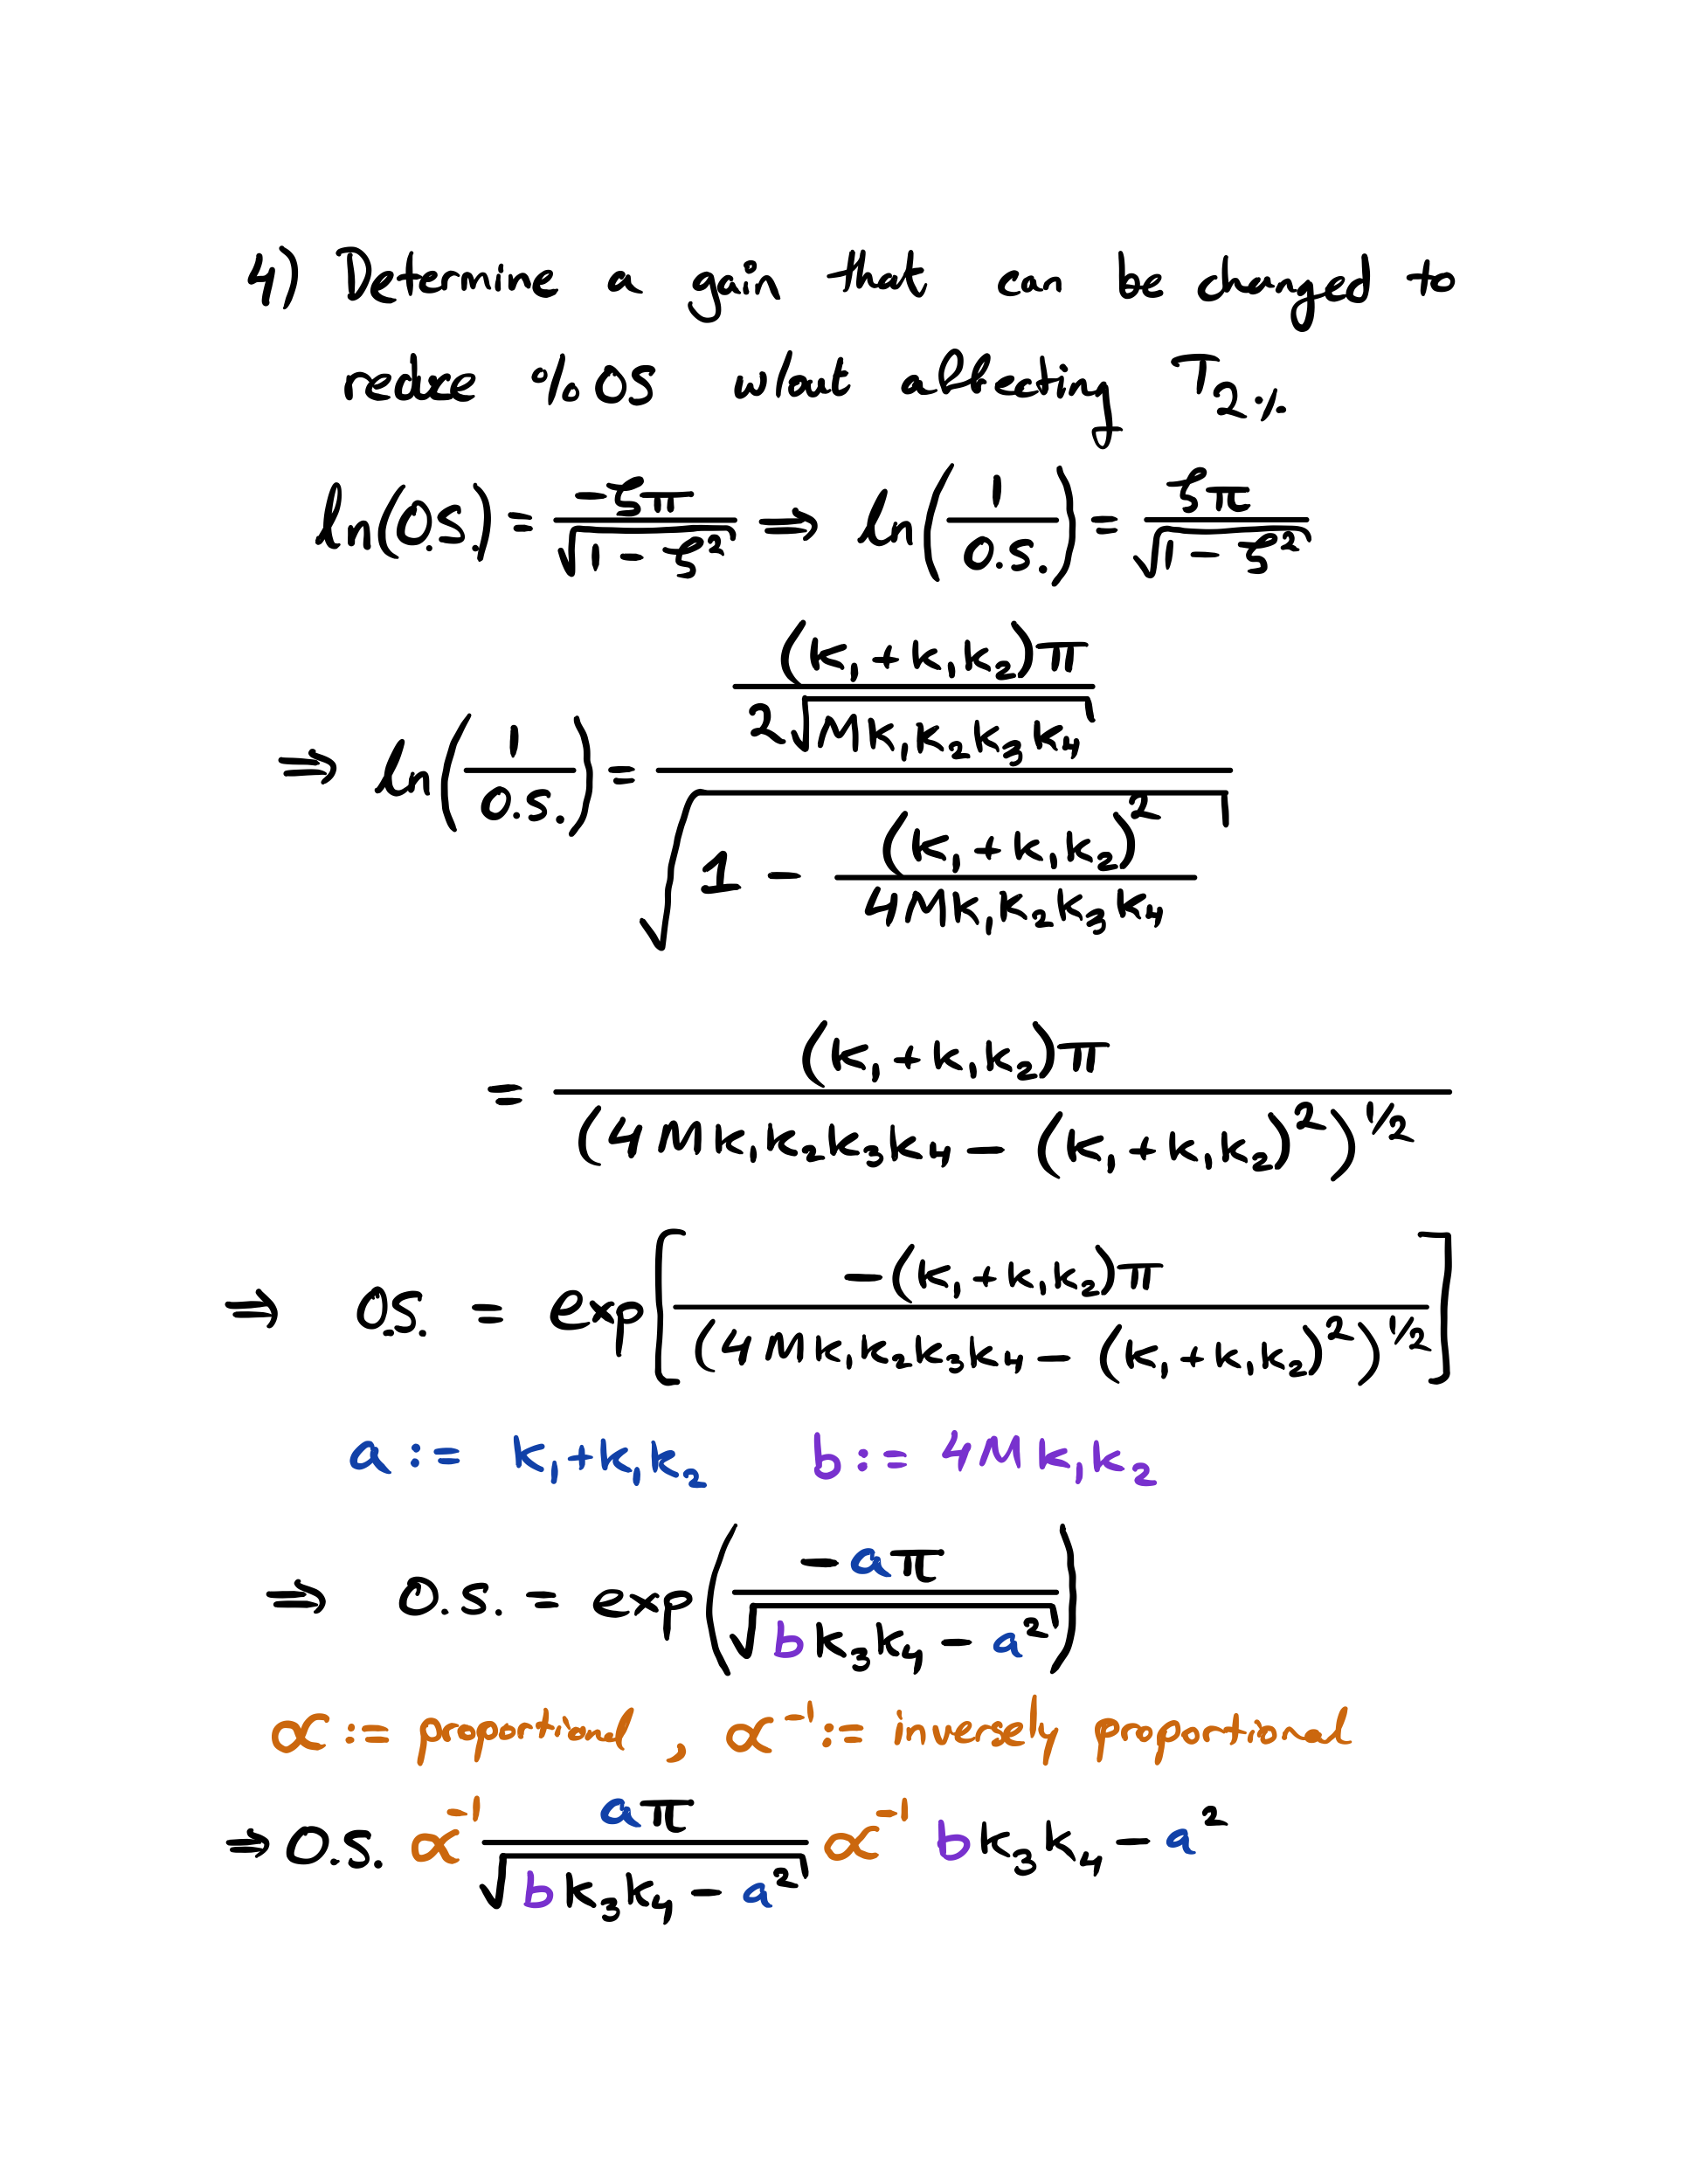 4) Determine a gain that can be changed to
reduce % OS w/out affecting T_{2%}
ln(O.S.) = -ξπ / √(1 - ξ²) ⇒ ln(1 / O.S.) = ξπ / √(1 - ξ²)
⇒ ln(1 / O.S.) = ((k₁ + k₁k₂)π / 2√(Mk₁k₂k₃k₄)) / √(1 - (k₁ + k₁k₂)² / 4Mk₁k₂k₃k₄)
= (k₁ + k₁k₂)π / (4Mk₁k₂k₃k₄ - (k₁ + k₁k₂)²)^{1/2}
⇒ O.S. = exp[-(k₁ + k₁k₂)π / (4Mk₁k₂k₃k₄ - (k₁ + k₁k₂)²)^{1/2}]
a := k₁ + k₁k₂ b := 4Mk₁k₂
⇒ O.S. = exp(-aπ / √(bk₃k₄ - a²))
∝ := proportional , ∝⁻¹ := inversely proportional
⇒ O.S. ∝⁻¹ aπ / √(bk₃k₄ - a²) ∝⁻¹ bk₃k₄ - a²